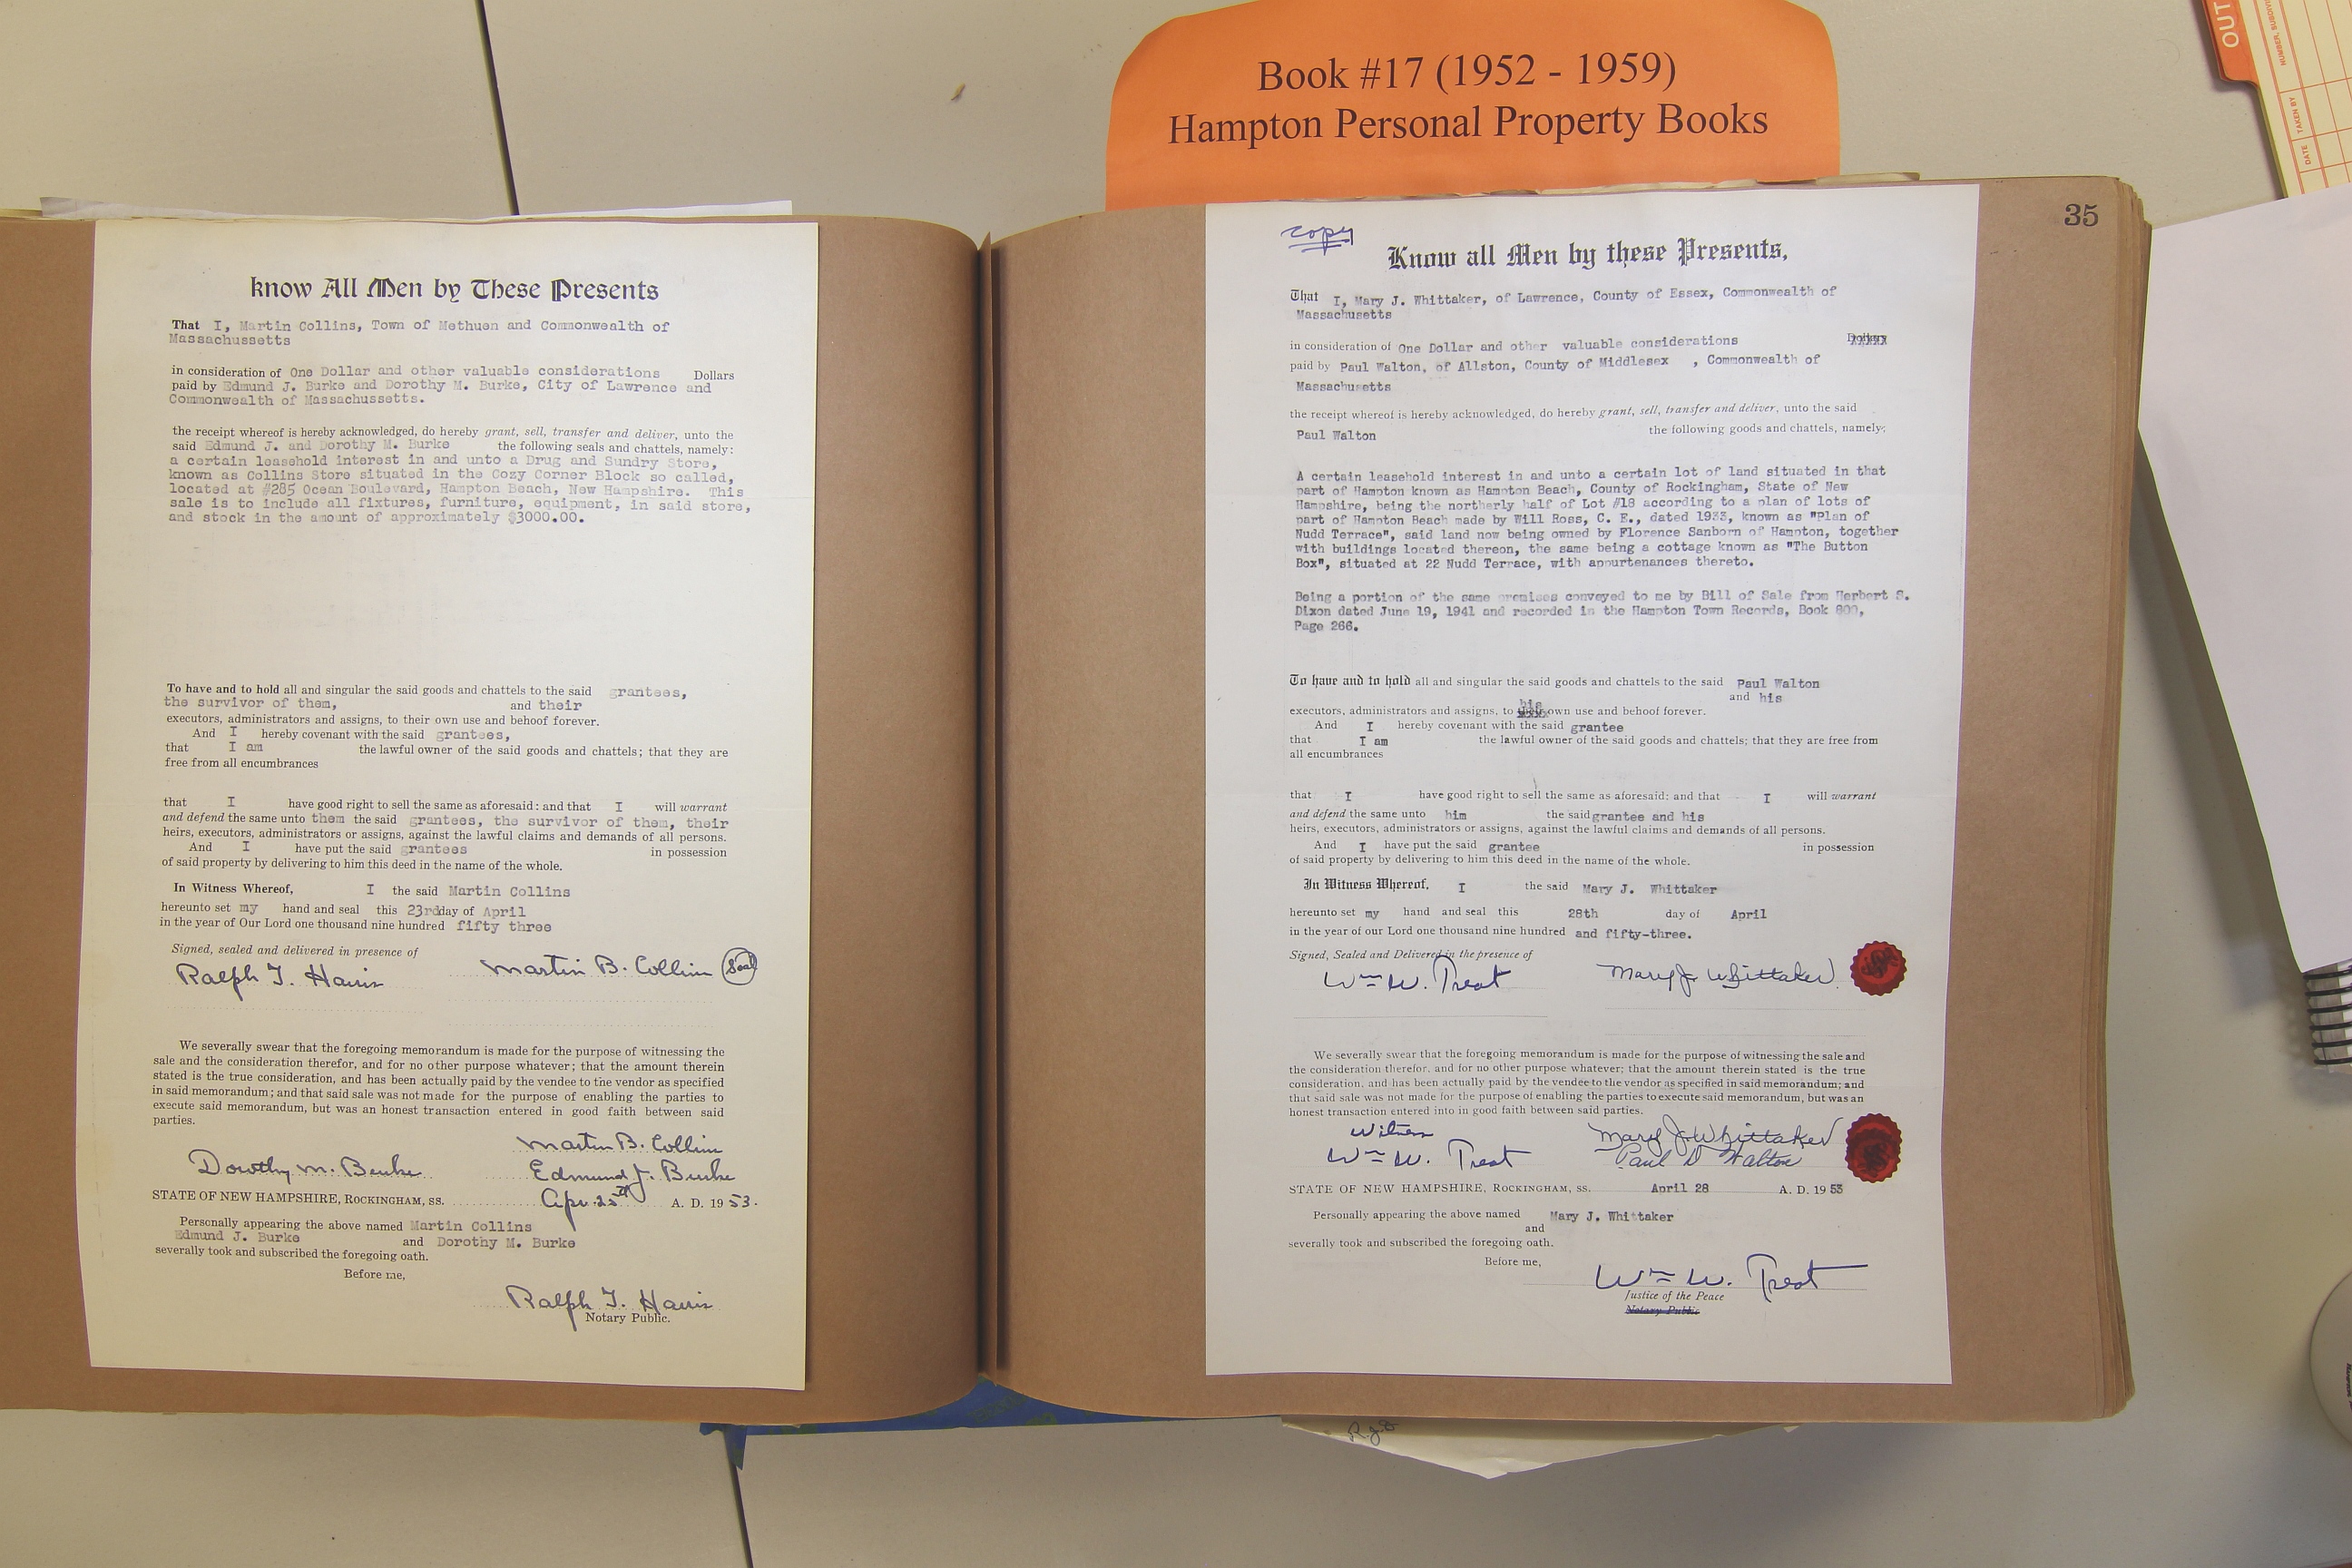 Book #17 (1952 - 1959)
Hampton Personal Property Books
OUT
NUMBER, SUBDIVI
TAKEN BY
DATE
know All Men by These Presents
That I, Martin Collins, Town of Methuen and Commonwealth of
Massachussetts
in consideration of One Dollar and other valuable considerations Dollars
paid by Edmund J. Burke and Dorothy M. Burke, City of Lawrence and
Commonwealth of Massachussetts.
the receipt whereof is hereby acknowledged, do hereby grant, sell, transfer and deliver, unto the
said Edmund J. and Dorothy M. Burke the following seals and chattels, namely:
a certain leasehold interest in and unto a Drug and Sundry Store,
known as Collins Store situated in the Cozy Corner Block so called,
located at #285 Ocean Boulevard, Hampton Beach, New Hampshire. This
sale is to include all fixtures, furniture, equipment, in said store,
and stock in the amount of approximately $3000.00.
To have and to hold all and singular the said goods and chattels to the said grantees,
the survivor of them, and their
executors, administrators and assigns, to their own use and behoof forever.
And I hereby covenant with the said grantees,
that I am the lawful owner of the said goods and chattels; that they are
free from all encumbrances
that I have good right to sell the same as aforesaid: and that I will warrant
and defend the same unto them the said grantees, the survivor of them, their
heirs, executors, administrators or assigns, against the lawful claims and demands of all persons.
And I have put the said grantees in possession
of said property by delivering to him this deed in the name of the whole.
In Witness Whereof, I the said Martin Collins
hereunto set my hand and seal this 23rdday of April
in the year of Our Lord one thousand nine hundred fifty three
Signed, sealed and delivered in presence of
Ralph T. Harris Martin B. Collins Seal
We severally swear that the foregoing memorandum is made for the purpose of witnessing the
sale and the consideration therefor, and for no other purpose whatever; that the amount therein
stated is the true consideration, and has been actually paid by the vendee to the vendor as specified
in said memorandum; and that said sale was not made for the purpose of enabling the parties to
execute said memorandum, but was an honest transaction entered in good faith between said
parties.
Martin B. Collins
Dorothy M. Burke Edmund J. Burke
STATE OF NEW HAMPSHIRE, ROCKINGHAM, SS. Apr. 25th A. D. 1953.
Personally appearing the above named Martin Collins
Edmund J. Burke and Dorothy M. Burke
severally took and subscribed the foregoing oath.
Before me,
Ralph T. Harris
Notary Public.
35
copy
Know all Men by these Presents,
That I, Mary J. Whittaker, of Lawrence, County of Essex, Commonwealth of
Massachusetts
in consideration of One Dollar and other valuable considerations Dollars
paid by Paul Walton, of Allston, County of Middlesex , Commonwealth of
Massachusetts
the receipt whereof is hereby acknowledged, do hereby grant, sell, transfer and deliver, unto the said
Paul Walton the following goods and chattels, namely;
A certain leasehold interest in and unto a certain lot of land situated in that
part of Hampton known as Hampton Beach, County of Rockingham, State of New
Hampshire, being the northerly half of Lot #18 according to a plan of lots of
part of Hampton Beach made by Will Ross, C. E., dated 1933, known as "Plan of
Nudd Terrace", said land now being owned by Florence Sanborn of Hampton, together
with buildings located thereon, the same being a cottage known as "The Button
Box", situated at 22 Nudd Terrace, with appurtenances thereto.
Being a portion of the same premises conveyed to me by Bill of Sale from Herbert S.
Dixon dated June 19, 1941 and recorded in the Hampton Town Records, Book 800,
Page 266.
To have and to hold all and singular the said goods and chattels to the said Paul Walton
and his
executors, administrators and assigns, to his own use and behoof forever.
And I hereby covenant with the said grantee
that I am the lawful owner of the said goods and chattels; that they are free from
all encumbrances
that I have good right to sell the same as aforesaid: and that I will warrant
and defend the same unto him the said grantee and his
heirs, executors, administrators or assigns, against the lawful claims and demands of all persons.
And I have put the said grantee in possession
of said property by delivering to him this deed in the name of the whole.
In Witness Whereof, I the said Mary J. Whittaker
hereunto set my hand and seal this 28th day of April
in the year of our Lord one thousand nine hundred and fifty-three.
Signed, Sealed and Delivered in the presence of
Wm W. Treat Mary J. Whittaker
We severally swear that the foregoing memorandum is made for the purpose of witnessing the sale and
the consideration therefor, and for no other purpose whatever; that the amount therein stated is the true
consideration, and has been actually paid by the vendee to the vendor as specified in said memorandum; and
that said sale was not made for the purpose of enabling the parties to execute said memorandum, but was an
honest transaction entered into in good faith between said parties.
Witness Mary J. Whittaker
Wm W. Treat Paul D Walton
STATE OF NEW HAMPSHIRE, ROCKINGHAM, SS. April 28 A. D. 1953
Personally appearing the above named Mary J. Whittaker
and
severally took and subscribed the foregoing oath.
Before me,
Wm W. Treat
Justice of the Peace
Notary Public